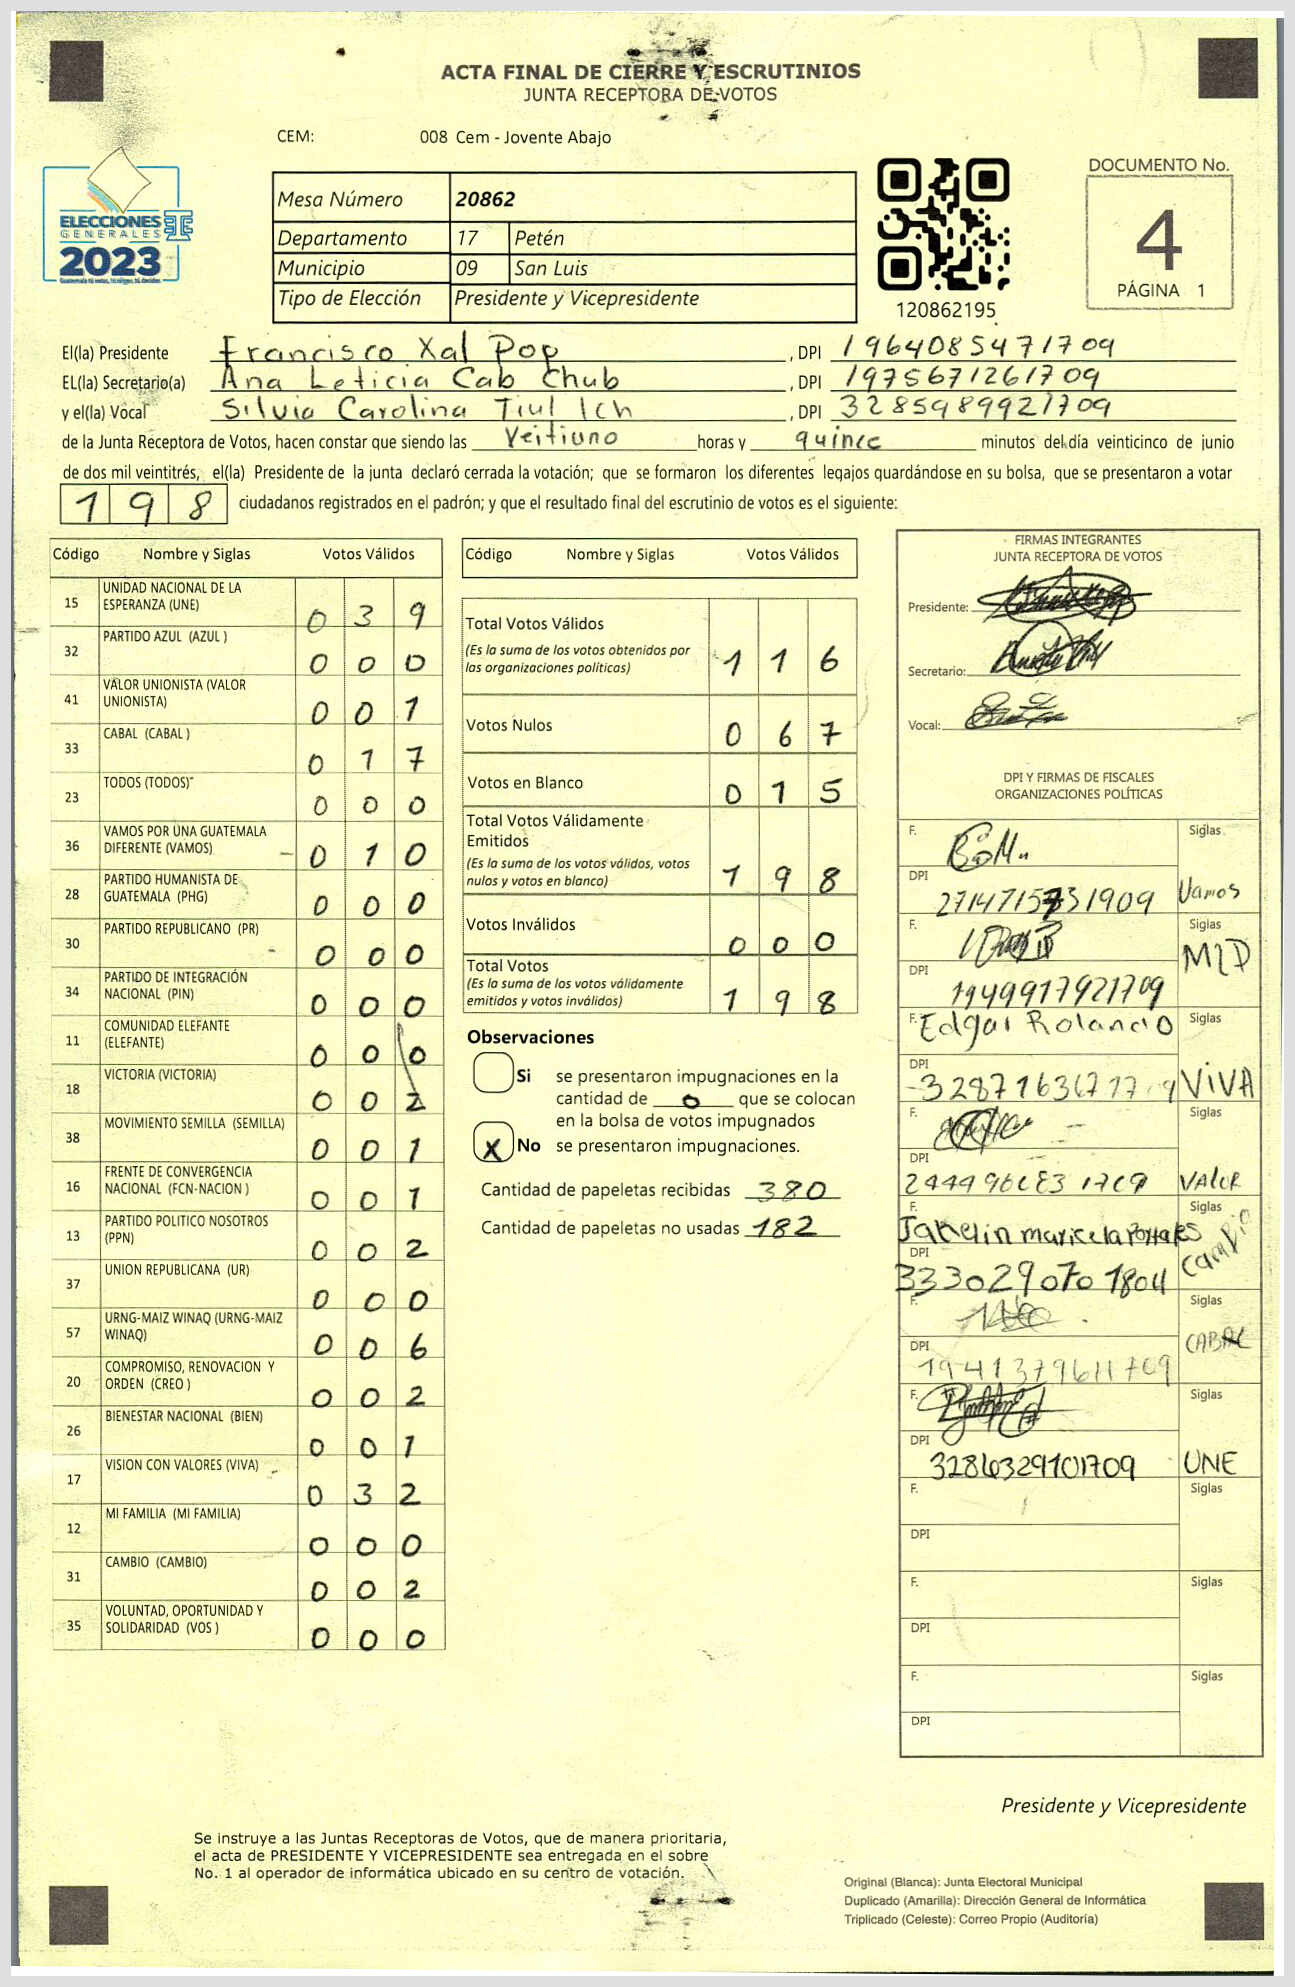 ACTA FINAL DE CIERRE Y ESCRUTINIOS
JUNTA RECEPTORA DE VOTOS
CEM: 008 Cem - Jovente Abajo
ELECCIONES
GENERALES
2023
Mesa Número 20862
Departamento 17 Petén
Municipio 09 San Luis
Tipo de Elección Presidente y Vicepresidente
120862195
DOCUMENTO No.
4
PÁGINA 1
El(la) Presidente Francisco Xal Pop, DPI 1964085471709
EL(la) Secretario(a) Ana Leticia Cab Chub, DPI 1975671261709
y el(la) Vocal Silvia Carolina Tiul Ich, DPI 3285989921709
de la Junta Receptora de Votos, hacen constar que siendo las Veitiuno horas y quince minutos del día veinticinco de junio
de dos mil veintitrés, el(la) Presidente de la junta declaró cerrada la votación; que se formaron los diferentes legajos guardándose en su bolsa, que se presentaron a votar
198 ciudadanos registrados en el padrón; y que el resultado final del escrutinio de votos es el siguiente:
Código Nombre y Siglas Votos Válidos
15 UNIDAD NACIONAL DE LA ESPERANZA (UNE) 0 3 9
32 PARTIDO AZUL (AZUL ) 0 0 0
41 VALOR UNIONISTA (VALOR UNIONISTA) 0 0 1
33 CABAL (CABAL ) 0 1 7
23 TODOS (TODOS) 0 0 0
36 VAMOS POR UNA GUATEMALA DIFERENTE (VAMOS) 0 1 0
28 PARTIDO HUMANISTA DE GUATEMALA (PHG) 0 0 0
30 PARTIDO REPUBLICANO (PR) 0 0 0
34 PARTIDO DE INTEGRACIÓN NACIONAL (PIN) 0 0 0
11 COMUNIDAD ELEFANTE (ELEFANTE) 0 0 0
18 VICTORIA (VICTORIA) 0 0 2
38 MOVIMIENTO SEMILLA (SEMILLA) 0 0 1
16 FRENTE DE CONVERGENCIA NACIONAL (FCN-NACION ) 0 0 1
13 PARTIDO POLITICO NOSOTROS (PPN) 0 0 2
37 UNION REPUBLICANA (UR) 0 0 0
57 URNG-MAIZ WINAQ (URNG-MAIZ WINAQ) 0 0 6
20 COMPROMISO, RENOVACION Y ORDEN (CREO ) 0 0 2
26 BIENESTAR NACIONAL (BIEN) 0 0 1
17 VISION CON VALORES (VIVA) 0 3 2
12 MI FAMILIA (MI FAMILIA) 0 0 0
31 CAMBIO (CAMBIO) 0 0 2
35 VOLUNTAD, OPORTUNIDAD Y SOLIDARIDAD (VOS ) 0 0 0
Código Nombre y Siglas Votos Válidos
Total Votos Válidos
(Es la suma de los votos obtenidos por las organizaciones políticas) 1 1 6
Votos Nulos 0 6 7
Votos en Blanco 0 1 5
Total Votos Válidamente Emitidos
(Es la suma de los votos válidos, votos nulos y votos en blanco) 1 9 8
Votos Inválidos 0 0 0
Total Votos
(Es la suma de los votos válidamente emitidos y votos inválidos) 1 9 8
Observaciones
Si se presentaron impugnaciones en la
cantidad de 0 que se colocan
en la bolsa de votos impugnados
X No se presentaron impugnaciones.
Cantidad de papeletas recibidas 380
Cantidad de papeletas no usadas 182
FIRMAS INTEGRANTES
JUNTA RECEPTORA DE VOTOS
Presidente:
Secretario:
Vocal:
DPI Y FIRMAS DE FISCALES
ORGANIZACIONES POLÍTICAS
F. Siglas
DPI Vamos
F. Siglas
DPI 1949917921709 MLP
F. Edgar Rolando Siglas
DPI VIVA
F. Siglas
DPI VALOR
F. Siglas
Jakelin maricela
DPI 333029070 1804 Cambio
F. Siglas
DPI 1941379611709 CABAL
F.
DPI 3286329101709 UNE
F. Siglas
DPI
F. Siglas
DPI
F. Siglas
DPI
Presidente y Vicepresidente
Se instruye a las Juntas Receptoras de Votos, que de manera prioritaria,
el acta de PRESIDENTE Y VICEPRESIDENTE sea entregada en el sobre
No. 1 al operador de informática ubicado en su centro de votación.
Original (Blanca): Junta Electoral Municipal
Duplicado (Amarilla): Dirección General de Informática
Triplicado (Celeste): Correo Propio (Auditoría)